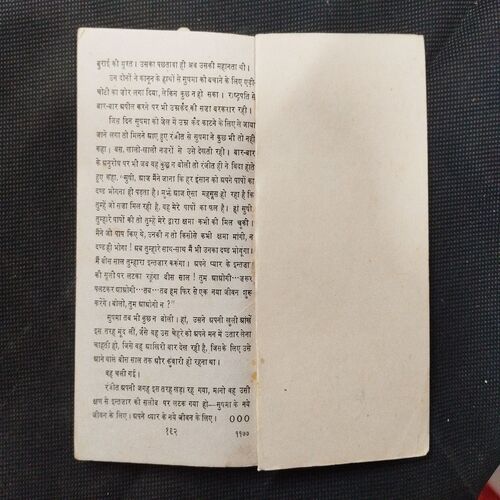 बुराई की मूरत। उसका पछतावा ही अब उसकी महानता थी।
उन दोनों ने कानून के हाथों से सुषमा को बचाने के लिए एड़ी-
चोटी का ज़ोर लगा दिया, लेकिन कुछ न हो सका। राष्ट्रपति से
बार-बार अपील करने पर भी उम्रकैद की सजा बरकरार रही।
जिस दिन सुषमा को जेल में उम्र कैद काटने के लिए ले जाया
जाने लगा तो मिलने आए हुए रंजीत से सुषमा ने कुछ भी तो नहीं
कहा। बस, खाली-खाली नजरों से उसे देखती रही। बार-बार
के अनुरोध पर भी जब वह कुछ न बोली तो रंजीत ही ने विदा होते
हुए कहा, "सुषी, आज मैंने जाना कि हर इंसान को अपने पापों का
दण्ड भोगना ही पड़ता है। मुझे आज ऐसा महसूस हो रहा है कि
तुम्हें जो सजा मिल रही है, वह मेरे पापों का फल है। हां सुषी,
तुम्हारे पापों की तो तुम्हें मेरे द्वारा क्षमा कभी की मिल चुकी।
मैंने जो पाप किए थे, उनकी न तो किसीसे कभी क्षमा मांगी, न
दण्ड ही भोगा! अब तुम्हारे साथ-साथ मैं भी उनका दण्ड भोगूंगा।
मैं बीस साल तुम्हारा इन्तजार करूंगा। अपने प्यार के इन्तजार
की सूली पर लटका रहूंगा बीस साल! तुम आओगी···जरूर
पलटकर आओगी···तब···तब हम फिर से एक नया जीवन शुरू
करेंगे। बोलो, तुम आओगी न?"
सुषमा तब भी कुछ न बोली। हां, उसने अपनी खुली आंखें
इस तरह मूंद लीं, जैसे वह उस चेहरे को अपने मन में उतार लेना
चाहती हो, जिसे वह आखिरी बार देख रही है, जिसके लिए उसे
आने वाले बीस साल तक और कुंवारी हो रहना था।
वह चली गई।
रंजीत अपनी जगह इस तरह खड़ा रह गया, मानो वह उसी
क्षण से इन्तजार की सलीब पर लटक गया हो—सुषमा के नये
जीवन के लिए। अपने प्यार के नये जीवन के लिए। ०००
१६२
११७७